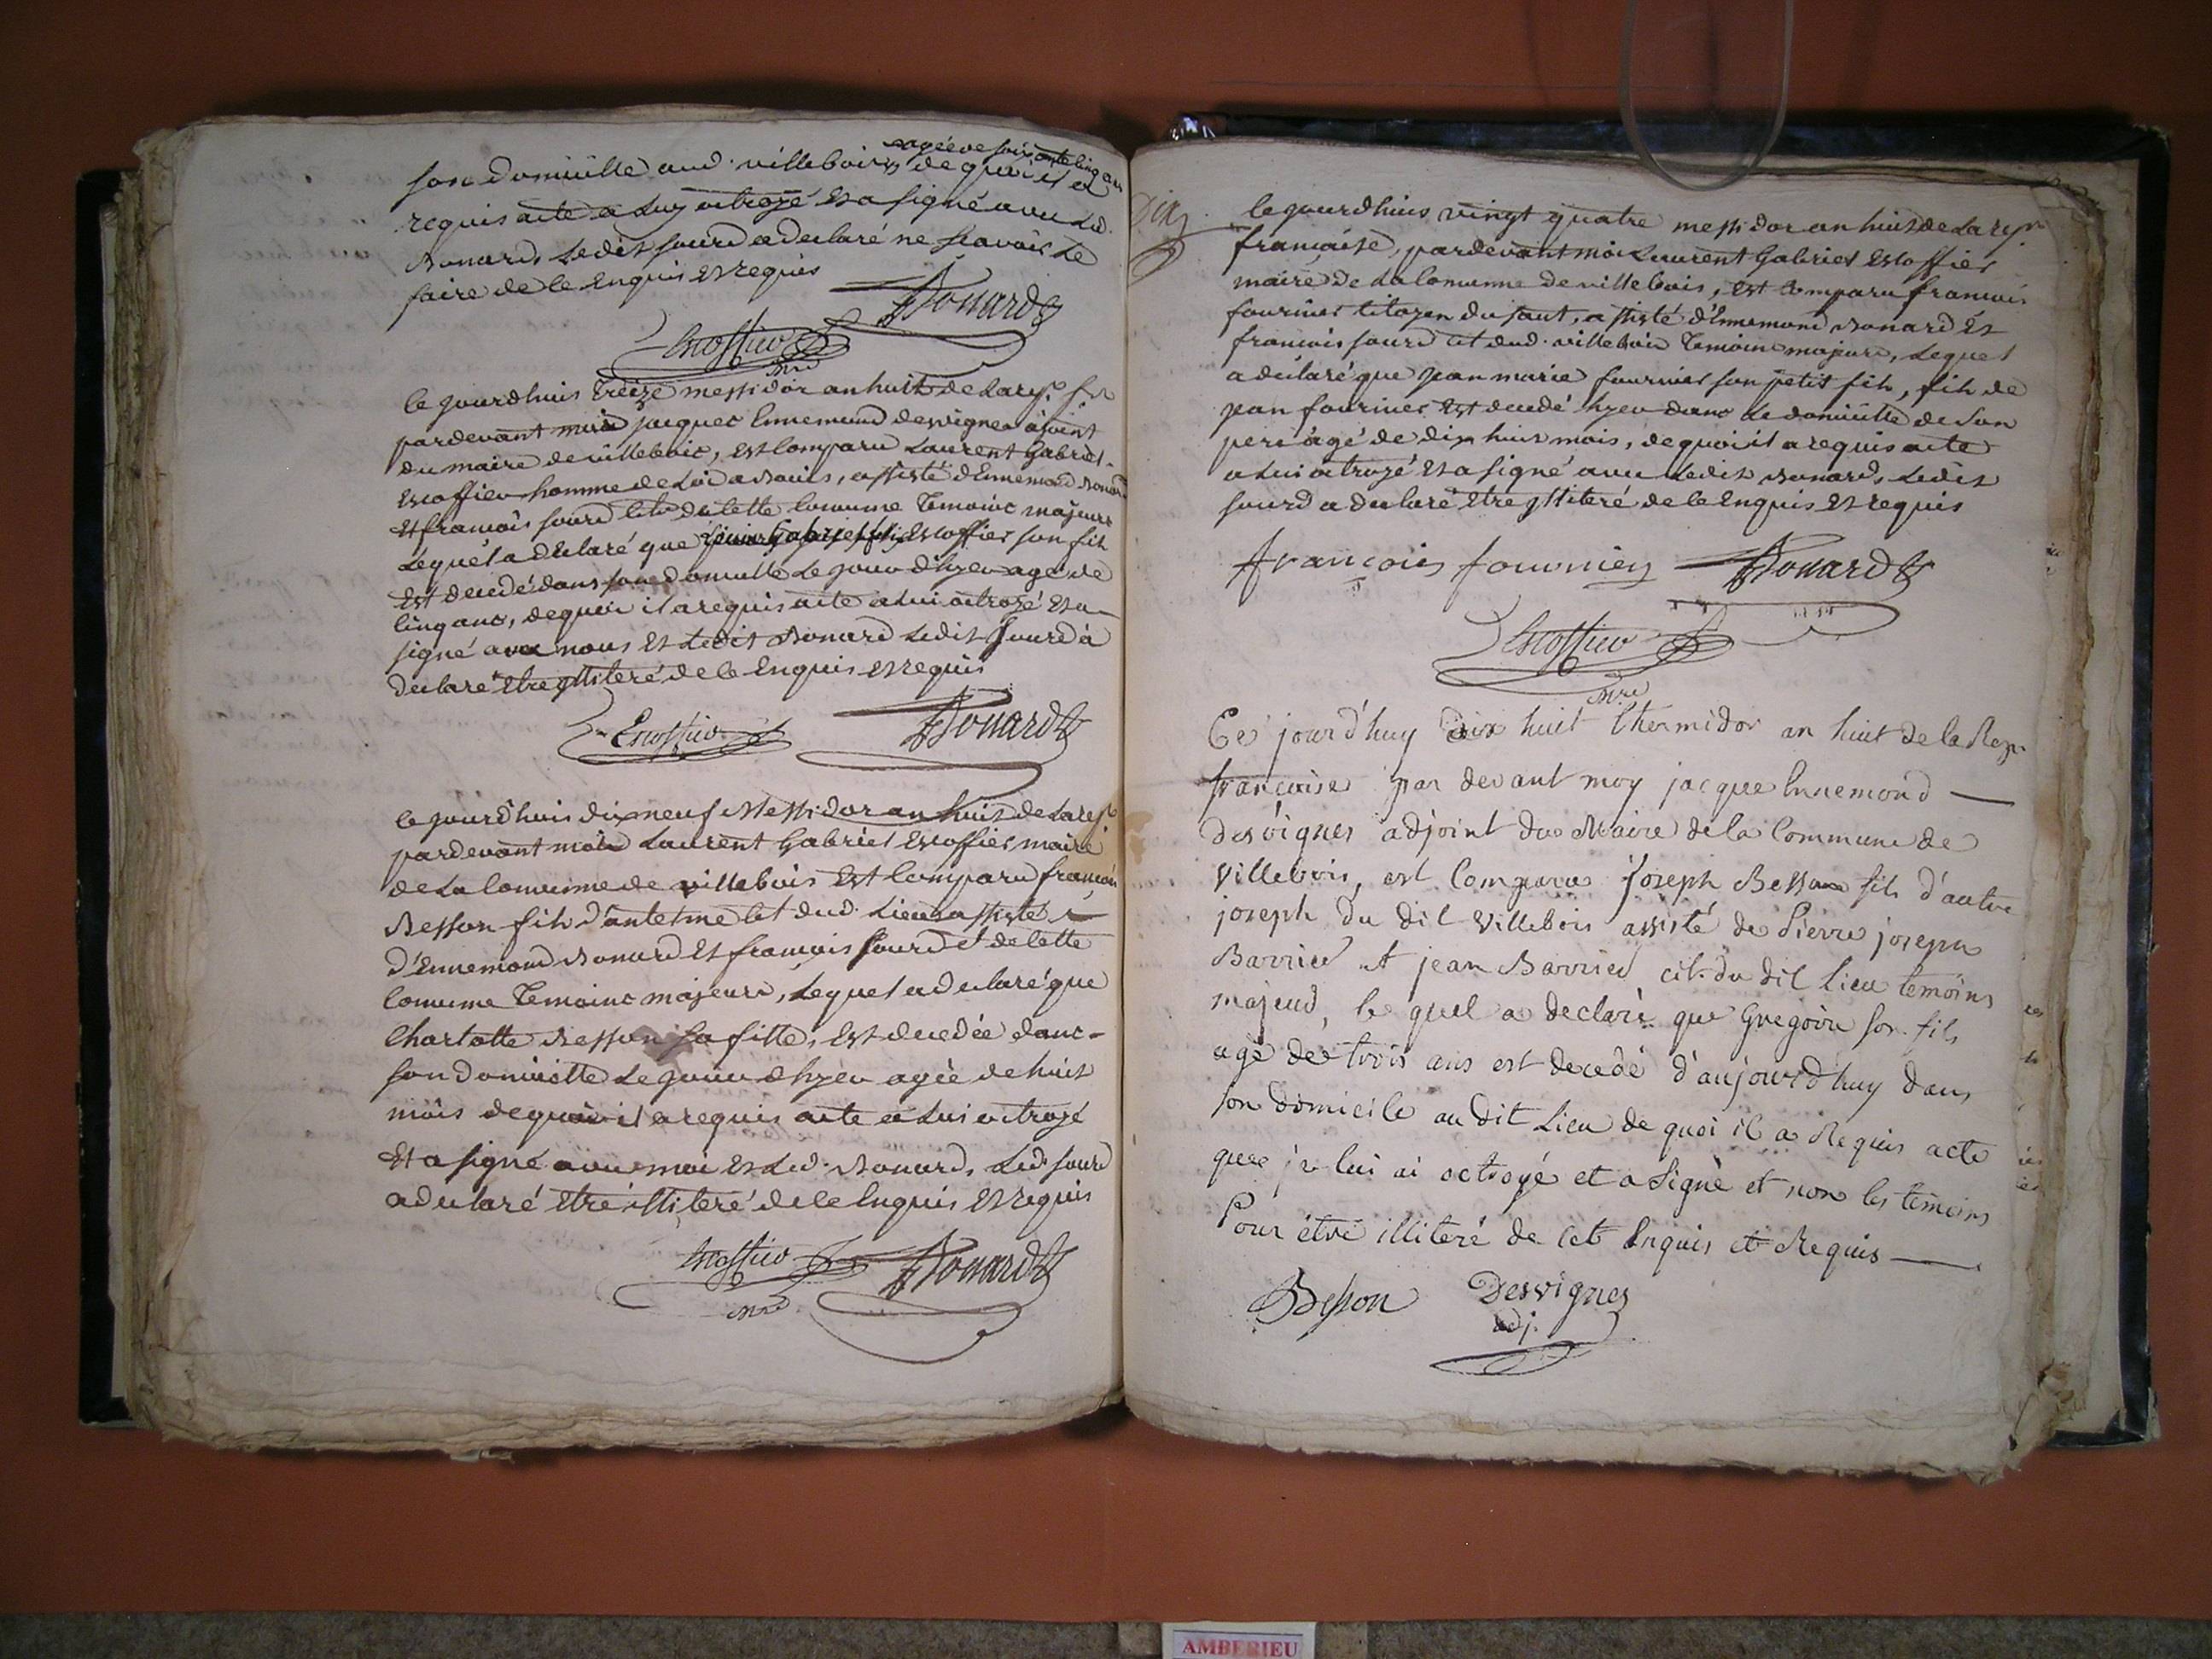 agée de soixante cinq ans
son domicille aud. villebois, de quoi il a
requis acte a Luy octroyé Et a signé avec Led.
Bonard, Ledit sourd a declaré ne scavoir Le
faire de ce Enquis Et requis
Bonard
Escoffier
mre
Ce jourdhuis treize messidor an huit de La rep. fr
pardevant moi jacques Ennemond desvignes ajoint
du maire de villebois, Est Comparu Laurent Gabriel
Escoffier homme de Loi a Bouis, assisté d'Ennemond Bonard
Et francois sourd cit. de Cette Commune Temoins majeurs
Lequel a declaré que Escoffier son fils
Est decedé dans son domicille Le jour d'hyer agé de
Cinq ans, de quoi il a requis acte a Lui octroyé Et a
signé avec nous Et Ledit Bonard Ledit sourd à
declaré Etre illiteré de ce Enquis Et requis
Escoffier Bonard
Ce jourd'huis dix neuf Messidor an huit de La rep
pardevant moi Laurent Gabriel Escoffier maire
de La Commune de villebois Est Comparu francois
Besson fils d'antelme Cit dud. Lieu assisté
d'Ennemond Bonard Et francois sourd C. de Cette
Commune Temoins majeurs, Lequel a declaré que
Charlotte Besson sa fille, Est decedée dans
son domicille Le jour d'hyer agée de huit
mois de quoi il a requis acte a Lui octroyé
Et a signé avec moi Et Led. Bonard, Led. sourd
a declaré Etre illiteré de ce Enquis Et requis
Escoffier Bonard
mre
Dix
Ce jourdhuis vingt quatre messidor an huit de La repe
francaise, pardevant moi Laurent Gabriel Escoffier
maire de La Commune de villebois, Est Comparu francois
fournier Citoyen du saut, assisté d'Ennemond Bonard Et
francois sourd Cit dud. villebois Temoins majeurs, Lequel
a declaré que jean marie fournier son petit fils, fils de
jean fournier Est decedé hyer dans Le domicille de son
pere âgé de dix huit mois, de quoi il a requis acte
a Lui octroyé Et a signé avec Ledit Bonard, Ledit
sourd a declaré Etre illiteré de ce Enquis Et requis
francois fournier Bonard
Escoffier
mre
Ce jourd'huy dix huit thermidor an huit de la Rep.
francoise par devant moy jacque Ennemond
Desvignes adjoint du Maire de la Commune de
Villebois, est Comparu joseph Besson fils d'autre
joseph du dit Villebois assisté de Pierre joseph
Barrier et jean Barrier cit. du dit lieu temoins
majeurs, le quel a declaré que Gregoire son fils
agé de trois ans est decedé d'aujourd'huy dans
son domicile au dit Lieu de quoi il a Requis acte
que je lui ai octroyé et a Signé et non les temoins
Pour être illiteré de Cet Enquis et Requis
Besson Desvignes
adj.
AMBERIEU